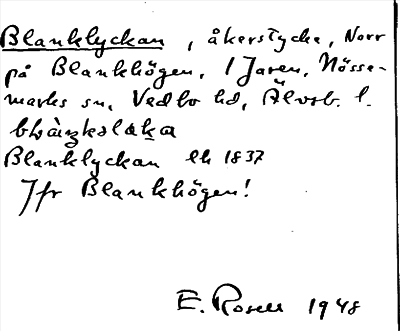 Blanklyckan, åkerstycke, Norr
på Blankhögen, I Jaren, Nösse-
marks sn, Vedbo hd, Älvsb. l.
Blanklyckan lh 1837
Jfr Blankhögen!
E. Rosell 1948